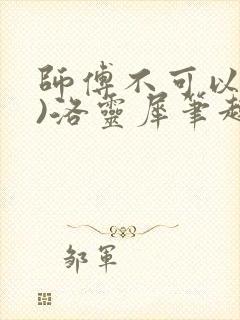 師傅不可以
)洛靈犀筆趣
邹軍